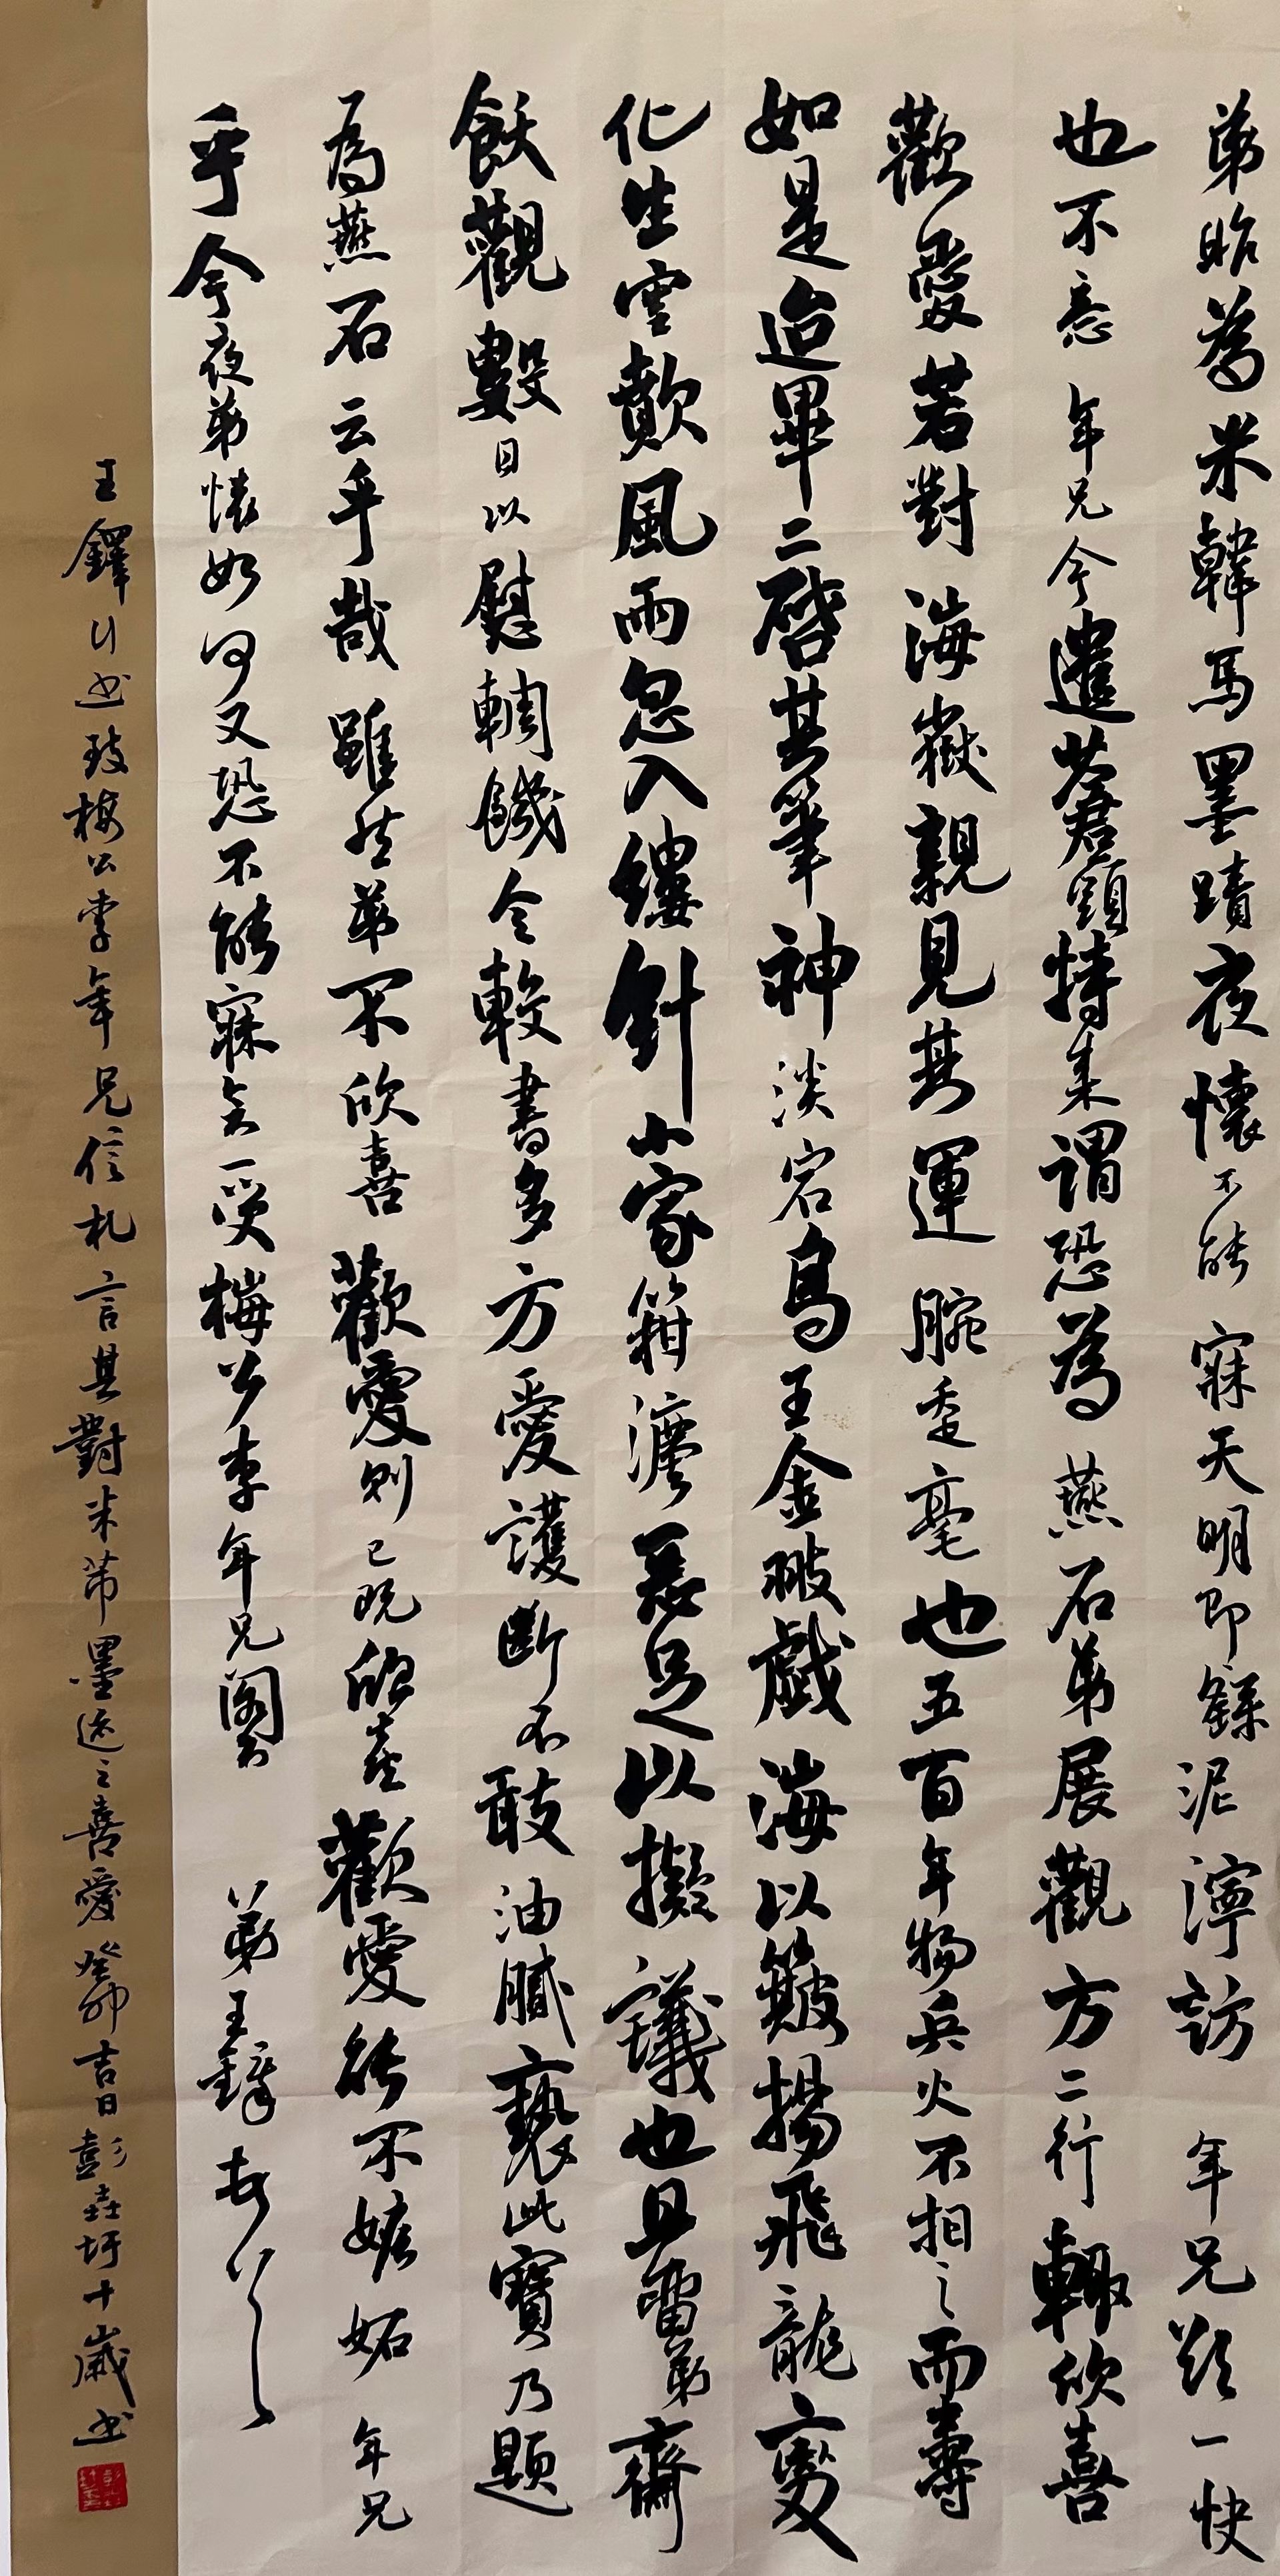 弟昨為米韓馬墨蹟夜懷不能寐天明即録泥濘訪年兄欵一快
也不意年兄今遣蒼頭特来謂恐為燕石弟展觀方二行輙欣喜
歡愛若對海嶽親見其運腕毫也五百年物兵火不相之而壽
如是迨畢二啓其筆神淡宕鳥王金翅戯海以簸揚飛龍變
化生雪歕風雨忽入縷針小家箝瀍惡足以擬議也且留弟齋
飫觀數日以慰輖饑令較書多方愛護斷不敢油膩褻此寳乃題
為燕石云乎哉雖然弟不欣喜歡愛則已既欣喜歡愛能不嫉妬年兄
乎今夜弟懷如何又恐不能寐矣受梅公李年兄閣下弟王鐸
王鐸行書致梅公李年兄信札言其對米芾墨迹之喜愛癸卯吉日彭垚圩十歲書